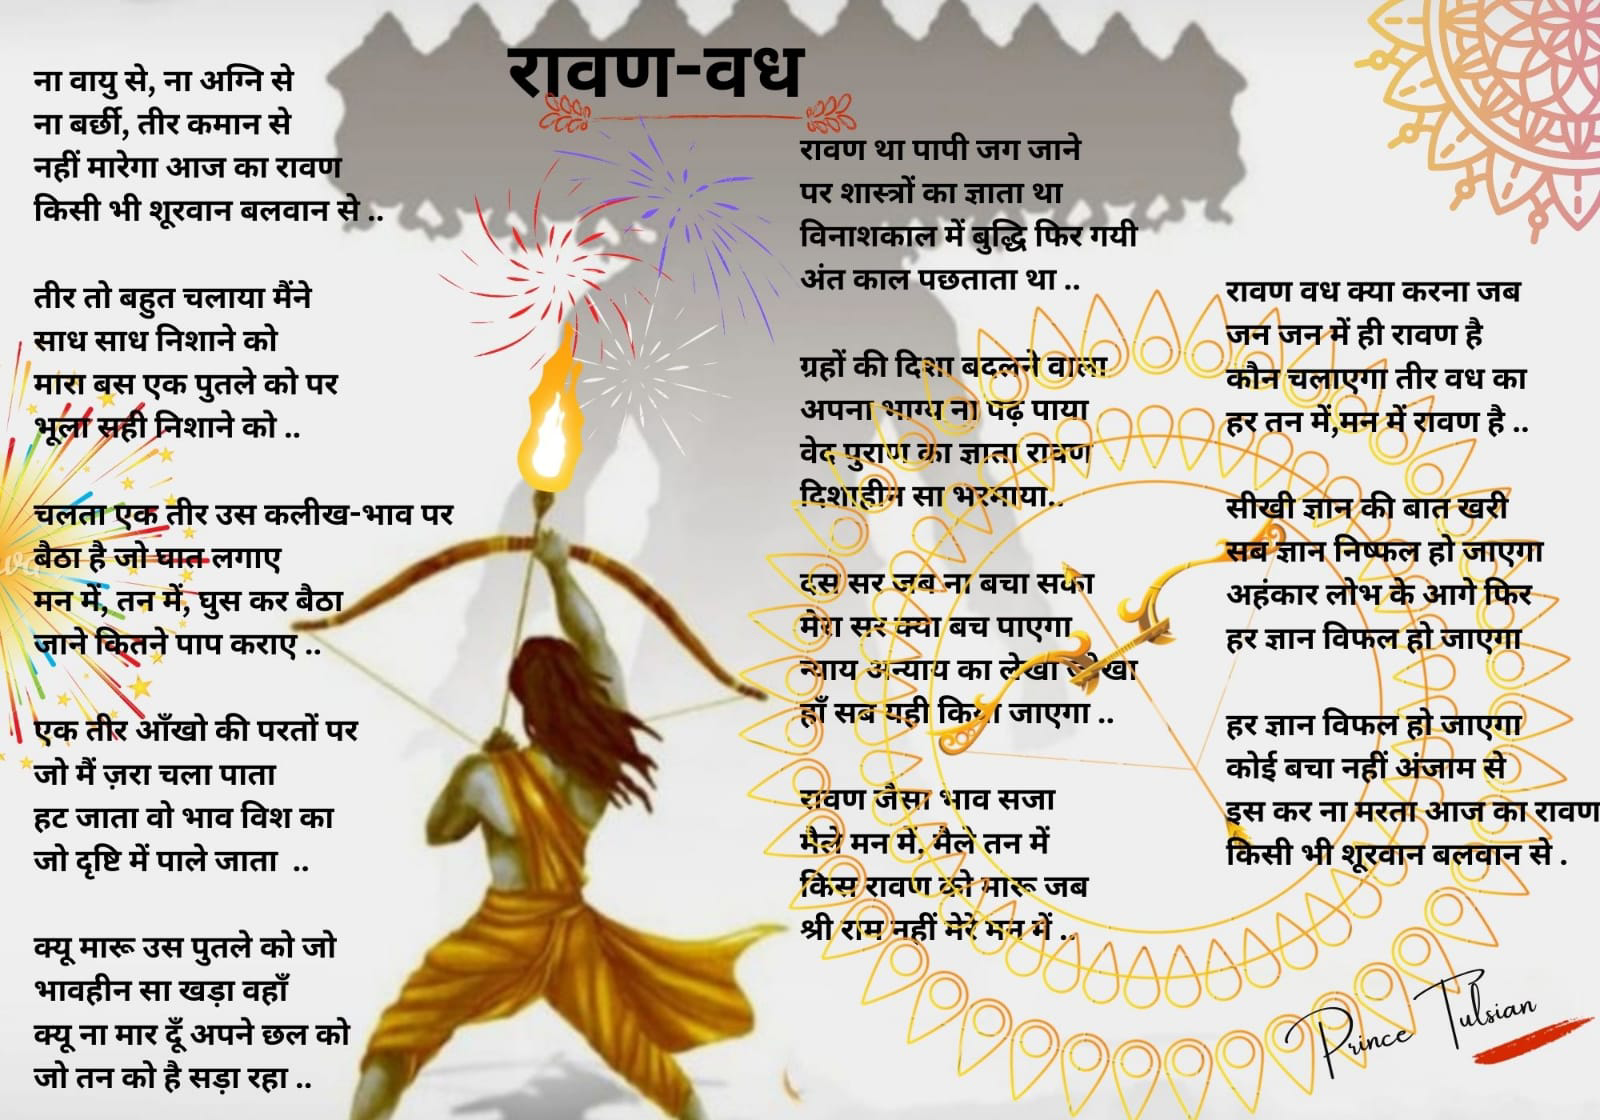 रावण-वध
ना वायु से, ना अग्नि से
ना बर्छी, तीर कमान से
नहीं मारेगा आज का रावण
किसी भी शूरवान बलवान से ..
तीर तो बहुत चलाया मैंने
साध साध निशाने को
मारा बस एक पुतले को पर
भूला सही निशाने को ..
चलता एक तीर उस कलीख-भाव पर
बैठा है जो घात लगाए
मन में, तन में, घुस कर बैठा
जाने कितने पाप कराए ..
एक तीर आँखो की परतों पर
जो मैं ज़रा चला पाता
हट जाता वो भाव विश का
जो दृष्टि में पाले जाता ..
क्यू मारू उस पुतले को जो
भावहीन सा खड़ा वहाँ
क्यू ना मार दूँ अपने छल को
जो तन को है सड़ा रहा ..
रावण था पापी जग जाने
पर शास्त्रों का ज्ञाता था
विनाशकाल में बुद्धि फिर गयी
अंत काल पछताता था ..
ग्रहों की दिशा बदलने वाला
अपना भाग्य ना पढ़ पाया
वेद पुराण का ज्ञाता रावण
दिशाहीन सा भरमाया..
दस सर जब ना बचा सका
मेरा सर क्या बच पाएगा
न्याय अन्याय का लेखा जोखा
हाँ सब यही किया जाएगा ..
रावण जैसा भाव सजा
मैले मन में, मैले तन में
किस रावण को मारू जब
श्री राम नहीं मेरे मन में ..
रावण वध क्या करना जब
जन जन में ही रावण है
कौन चलाएगा तीर वध का
हर तन में,मन में रावण है ..
सीखी ज्ञान की बात खरी
सब ज्ञान निष्फल हो जाएगा
अहंकार लोभ के आगे फिर
हर ज्ञान विफल हो जाएगा
हर ज्ञान विफल हो जाएगा
कोई बचा नहीं अंजाम से
इस कर ना मरता आज का रावण
किसी भी शूरवान बलवान से .
Prince Tulsian